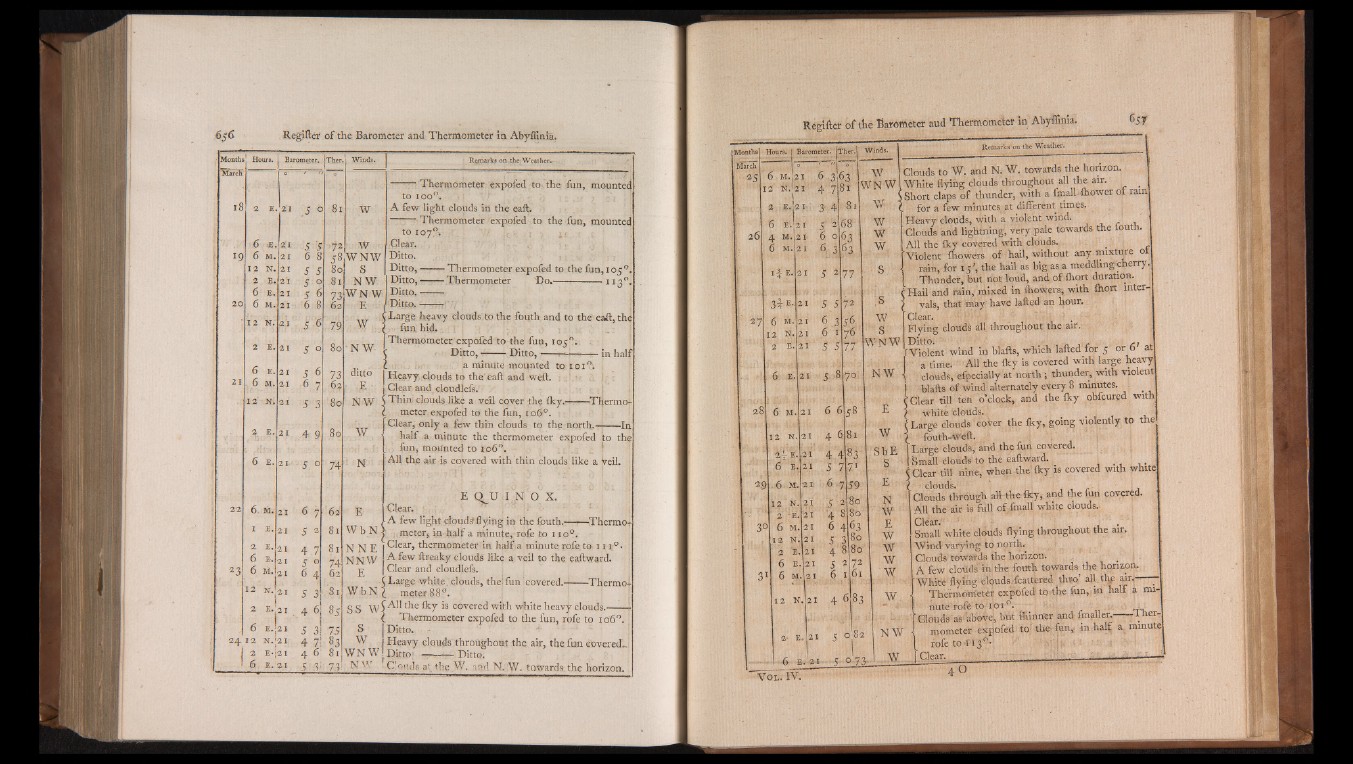 656 Regiſter of the Barometer and Thermometer in Abyſſinia.
Months Hours. Barometer. Ther. Winds. Remarks on the Weather.
March ° ′ ″ °
—— Thermometer expoſed to the ſun, mounted
to 100°.
18 2 E. 21 5 0 81 W A few light clouds in the eaſt.
—— Thermometer expoſed to the ſun, mounted
to 107°.
6 E. 21 5 5 72 W Clear.
19 6 M. 21 6 8 58 WNW Ditto.
12 N. 21 5 5 80 S Ditto, —— Thermometer expoſed to the ſun, 105°.
2 E. 21 5 0 81 NW Ditto, —— Thermometer Do. —— 113°.
6 E. 21 5 6 73 WNW Ditto. ——
20 6 M. 21 6 8 62 E Ditto. ——
12 N. 21 5 6 79 W Large heavy clouds to the ſouth and to the eaſt, the
ſun hid.
2 E. 21 5 0 80 NW Thermometer expoſed to the ſun, 105°.
Ditto, —— Ditto, —— in half
a minute mounted to 101°.
6 E. 21 5 6 73 ditto Heavy clouds to the eaſt and weſt.
21 6 M. 21 6 7 62 E Clear and cloudleſs.
12 N. 21 5 3 80 NW Thin clouds like a veil cover the ſky.——Thermo-
meter expoſed to the ſun, 106°.
2 E. 21 4 9 80 W Clear, only a few thin clouds to the north.——In
half a minute the thermometer expoſed to the
ſun, mounted to 106°.
6 E. 21 5 0 74 N All the air is covered with thin clouds like a veil.
EQUINOX.
22 6 M. 21 6 7 62 E Clear.
1 E. 21 5 2 81 WbN A few light clouds flying in the ſouth.——Thermo-
meter, in half a minute, roſe to 110°.
2 E. 21 4 7 81 NNE Clear, thermometer in half a minute roſe to 111°.
6 E. 21 5 0 74 NNW A few ſtreaky clouds like a veil to the eaſtward.
23 6 M. 21 6 4 62 E Clear and cloudleſs.
12 N. 21 5 3 81 WbN Large white clouds, the ſun covered.——Thermo-
meter 88°.
2 E. 21 4 6 85 SSW All the ſky is covered with white heavy clouds.——
Thermometer expoſed to the ſun, roſe to 106°.
6 E. 21 5 3 75 S Ditto.
24 12 N. 21 4 7 83 W Heavy clouds throughout the air, the ſun covered.
2 E. 21 4 6 81 WNW Ditto —— Ditto.
6 E. 21 5 3 73 NW Clouds at the W. and N. W. towards the horizon.
Regiſter of the Barometer and Thermometer in Abyſſinia. 657
Months Hours. Barometer. Ther. Winds. Remarks on the Weather.
March ° ′ ″ °
25 6 M. 21 6 3 63 W Clouds to W. and N. W. towards the horizon.
12 N. 21 4 7 81 WNW White flying clouds throughout all the air.
2 E. 21 3 4 81 W Short claps of thunder, with a ſmall ſhower of rain
for a few minutes at different times.
6 E. 21 5 2 68 W Heavy clouds, with a violent wind.
26 4 M. 21 6 0 63 W Clouds and lightning, very pale towards the ſouth.
6 M. 21 6 3 63 W All the ſky covered with clouds.
1¼ E. 21 5 2 77 S Violent ſhowers of hail, without any mixture of
rain, for 15′, the hail as big as a meddling cherry.
Thunder, but not loud, and of ſhort duration.
3¼ E. 21 5 5 72 S Hail and rain, mixed in ſhowers, with ſhort inter-
vals, that may have laſted an hour.
27 6 M. 21 6 3 56 W Clear.
12 N. 21 6 1 76 S Flying clouds all throughout the air.
2 E. 21 5 5 77 WNW Ditto.
6 E. 21 5 8 70 NW Violent wind in blaſts, which laſted for 5 or 6′ at
a time. All the ſky is covered with large heavy
clouds, eſpecially at north; thunder, with violent
blaſts of wind alternately every 8 minutes.
28 6 M. 21 6 6 58 E Clear till ten o'clock, and the ſky obſcured with
white clouds.
12 N. 21 4 6 81 W Large clouds cover the ſky, going violently to the
ſouth-weſt.
2½ E. 21 4 4 83 SbE Large clouds, and the ſun covered.
6 E. 21 5 7 71 S Small clouds to the eaſtward.
29 6 M. 21 6 7 59 E Clear till nine, when the ſky is covered with white
clouds.
12 N. 21 5 2 80 N Clouds through all the ſky, and the ſun covered.
2 E. 21 4 8 80 W All the air is full of ſmall white clouds.
30 6 M. 21 6 4 63 E Clear.
12 N. 21 5 3 80 W Small white clouds flying throughout the air.
2 E. 21 4 8 80 W Wind varying to north.
6 E. 21 5 2 72 W Clouds towards the horizon.
31 6 M. 21 6 1 61 W A few clouds in the ſouth towards the horizon.
12 N. 21 4 6 83 W White flying clouds ſcattered thro' all the air.——
Thermometer expoſed to the ſun, in half a mi-
nute roſe to 101°.
2 E. 21 5 0 82 NW Clouds as above, but thinner and ſmaller.——Ther-
mometer expoſed to the ſun, in half a minute
roſe to 113°.
6 E. 21 5 0 73 W Clear.
VOL. IV. 4 O